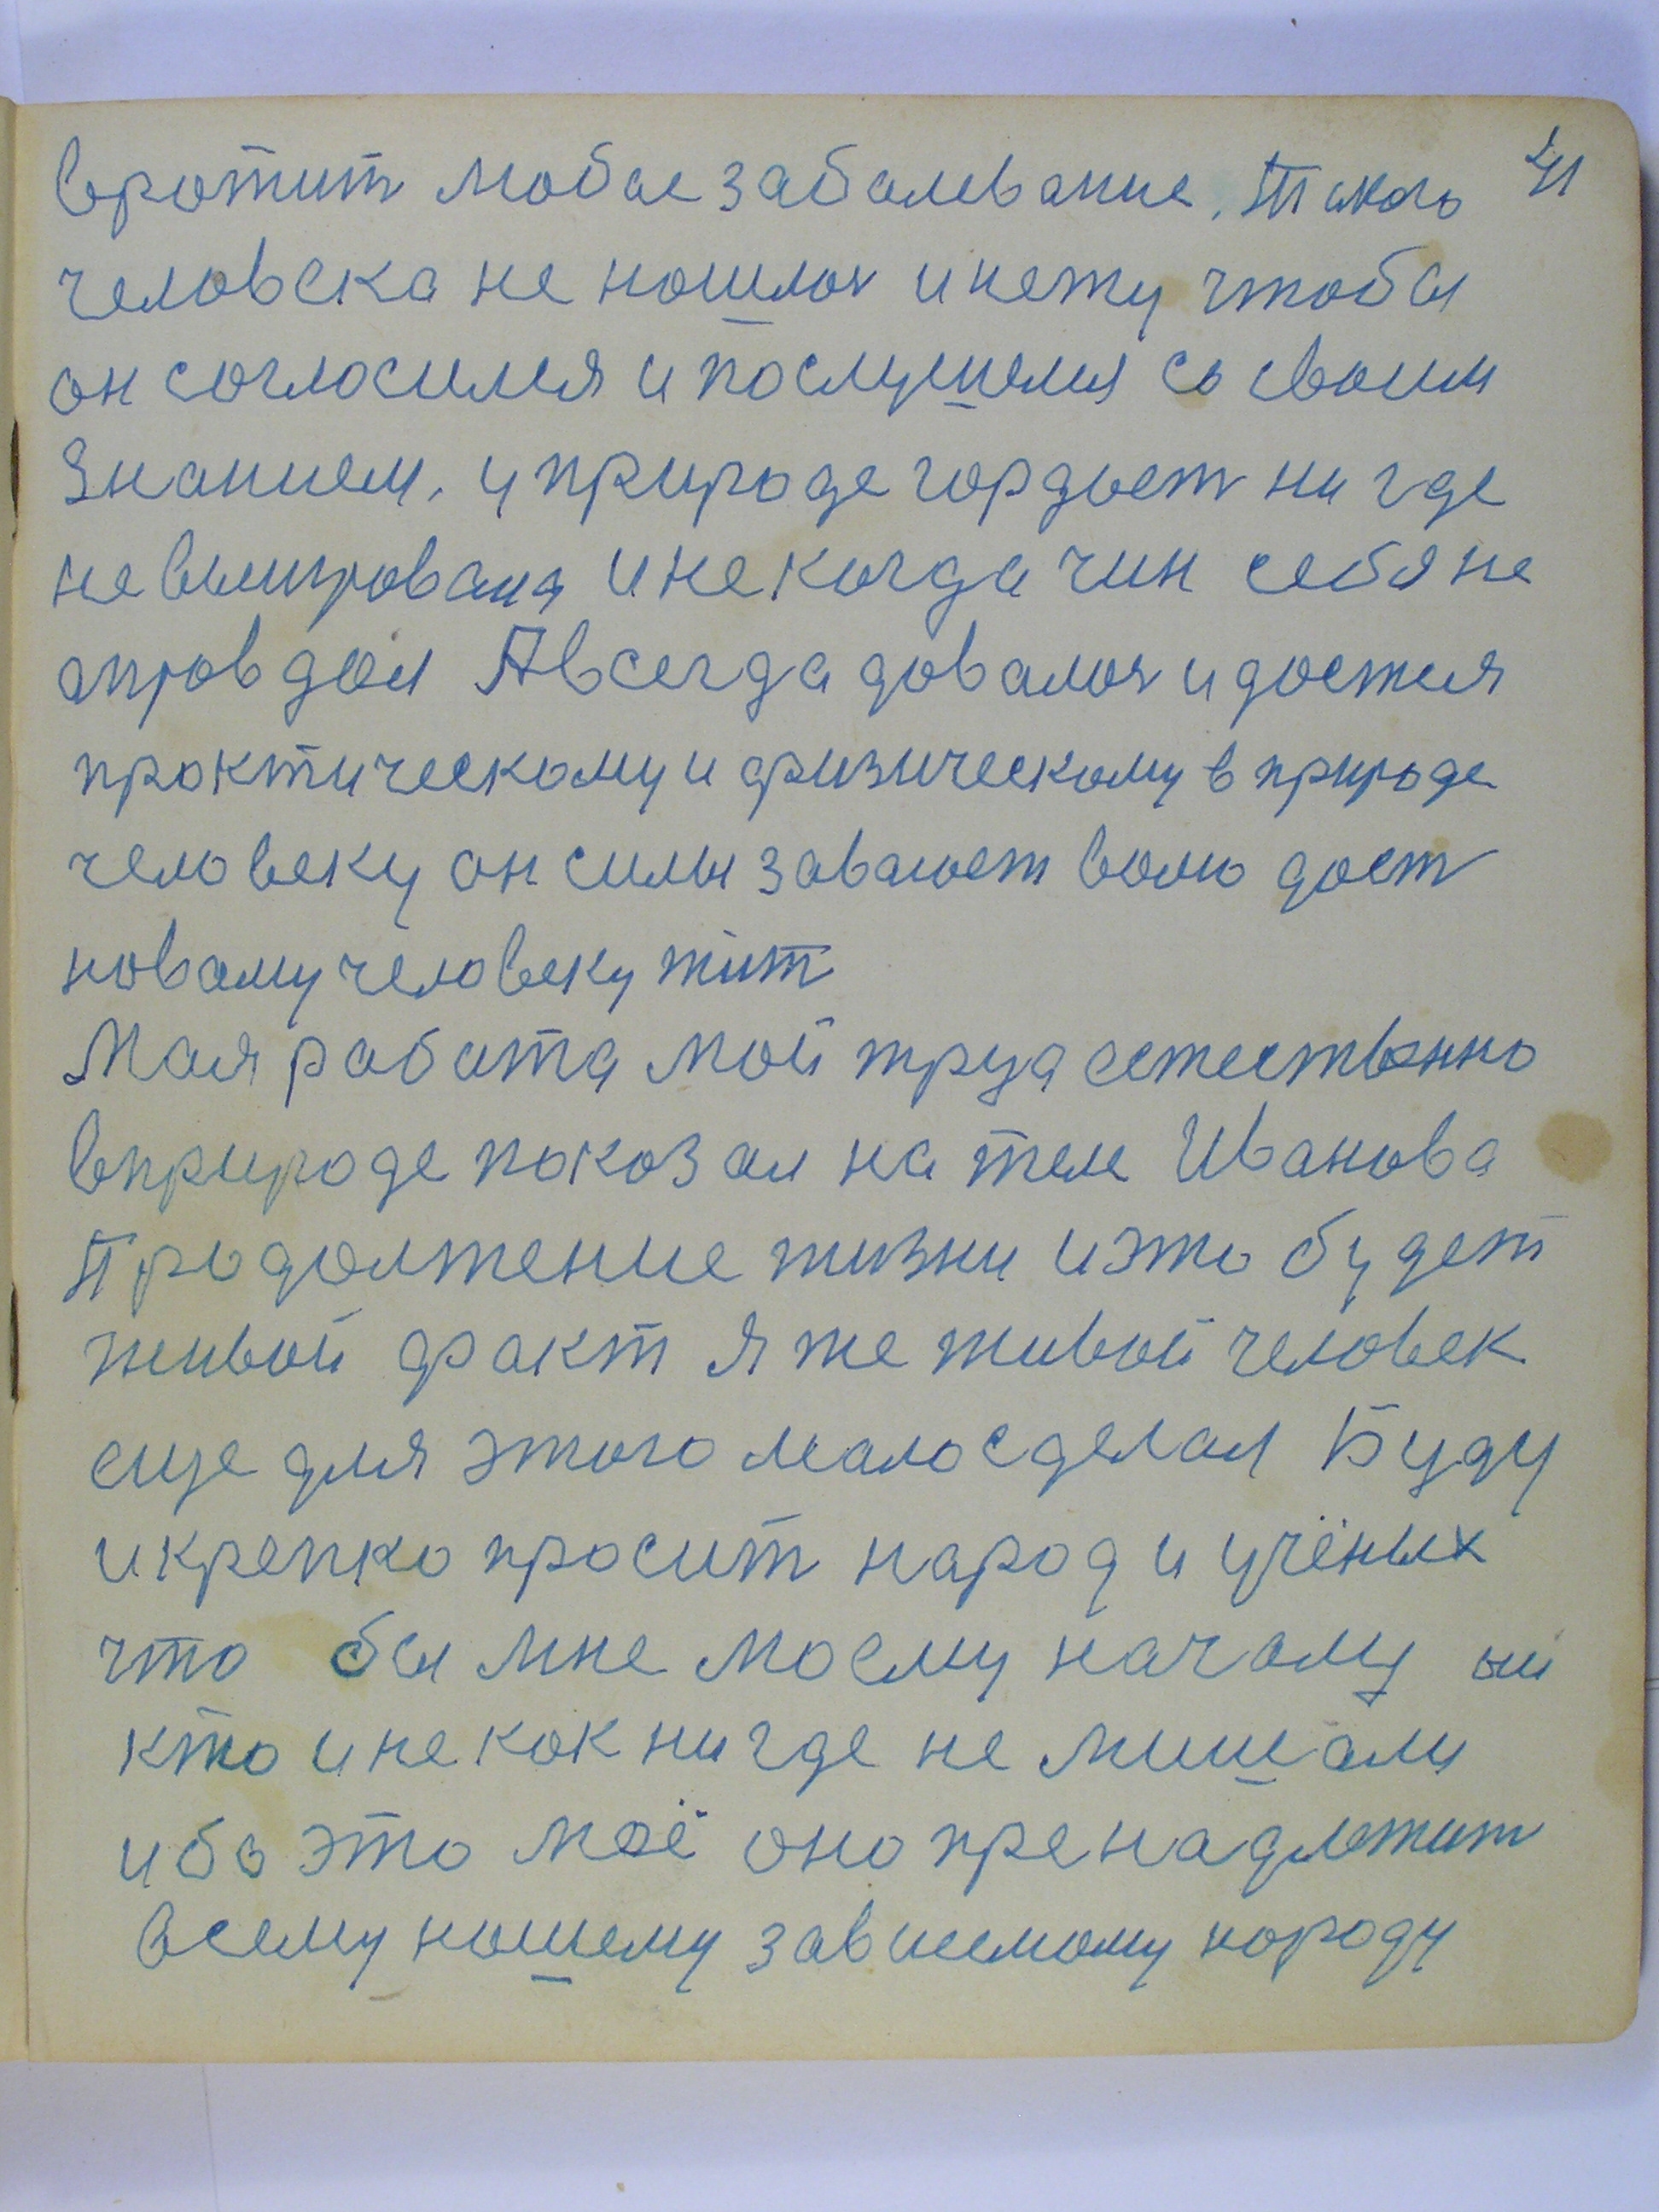 41
вротит любое заболевание. Такого
человека не ношлось и нету чтобы
он согласился и послушелся со своим
Знанием, у природе гордыет ни где
не выигрования и некогда чин себя не
оправдал А всегда довалось и достся
проктическому и физическому в природе
человеку он силы заваюет волю дает
новаму человеку жит
Мая работа мой труд естественно
в природе показал на теле Иванова
Продолжение жизни и это будет
живой факт Я же живой человек
еще для этого мало сделал Буду
и крепко просит народ и учёных
что бы мне моему началу ни
кто и не как ни где не мишали
ибо это моё оно пренадлежит
всему ношему зависемому народу